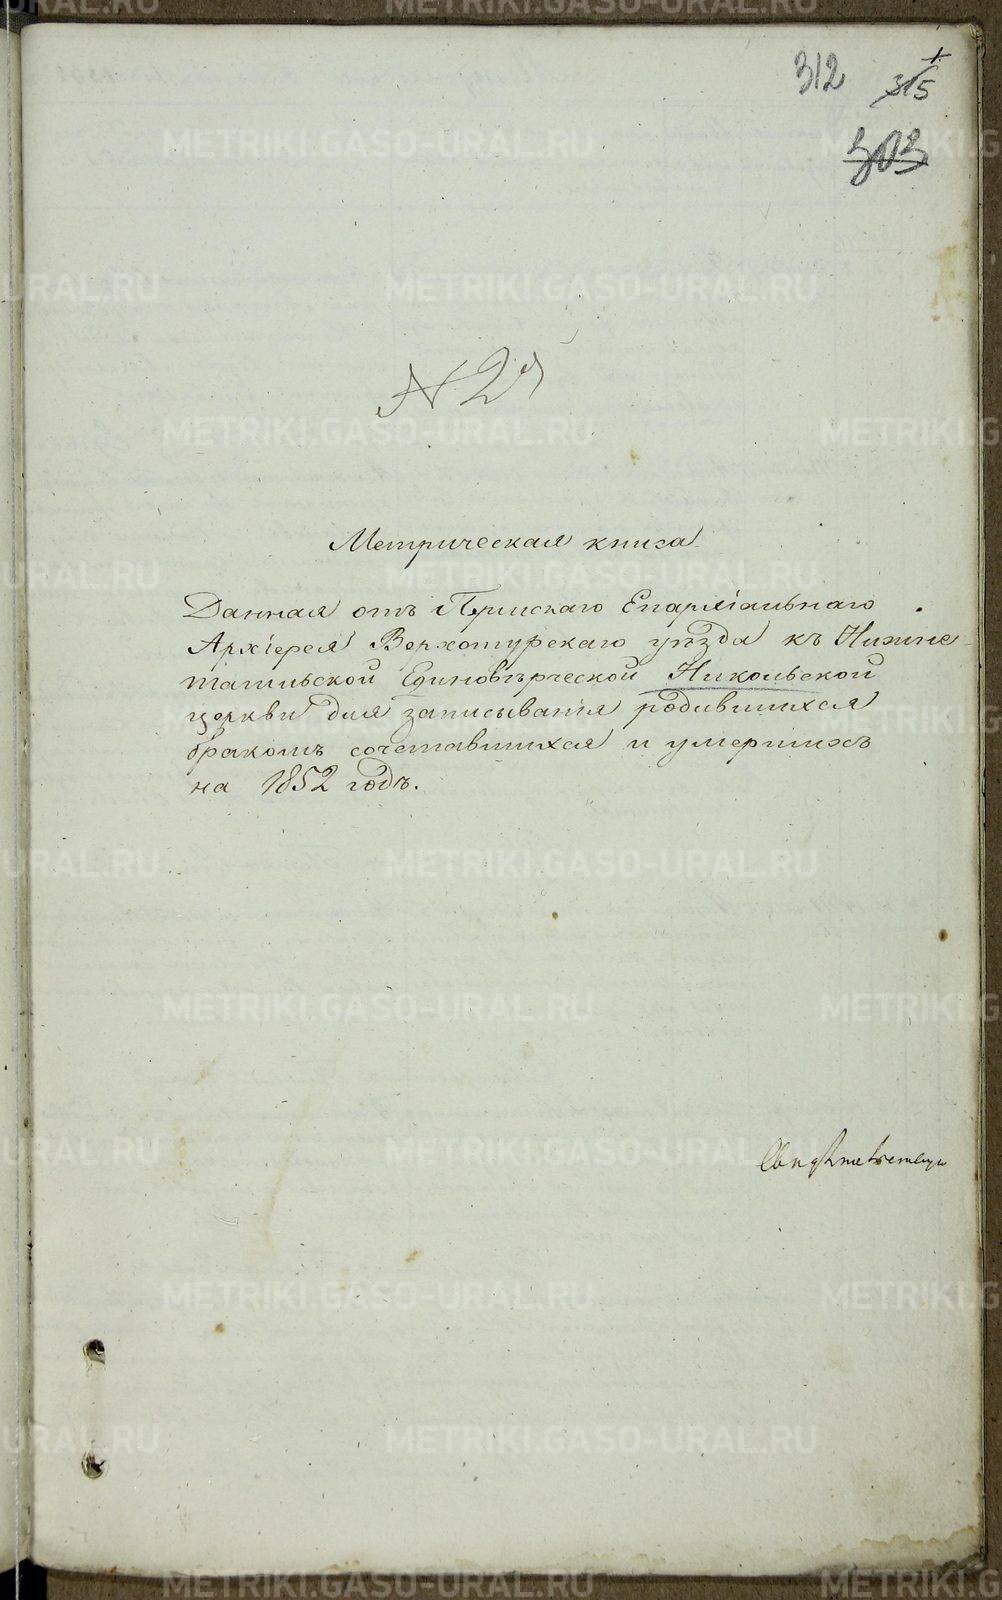 312
315
303
N 2й
Метрическая книга
Данная отъ Пермскаго Епархіальнаго
Архіерея Верхотурскаго уѣзда къ Нижне
тагильской Единовѣрческой Никольской
церкви для записыванія родившихся
бракомъ сочетавшихся и умершихъ
на 1852 годъ.
METRIKI.GASO-URAL.RU